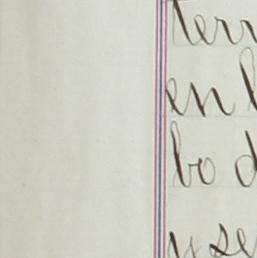 terr
en
bo d
y se